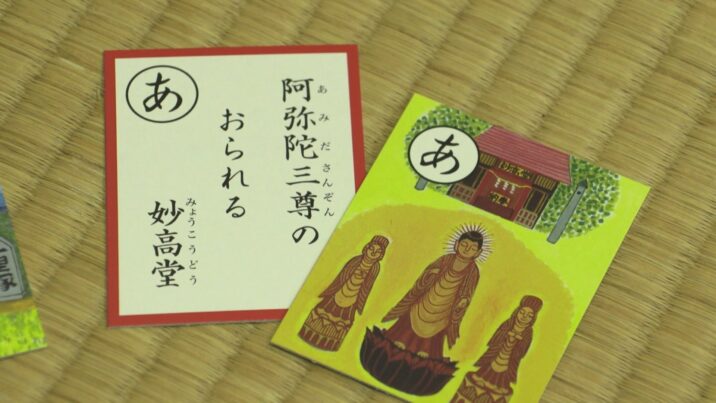 あ
阿弥陀三尊の
あみださんぞん
おられる
妙高堂
みょうこうどう
あ
里塚